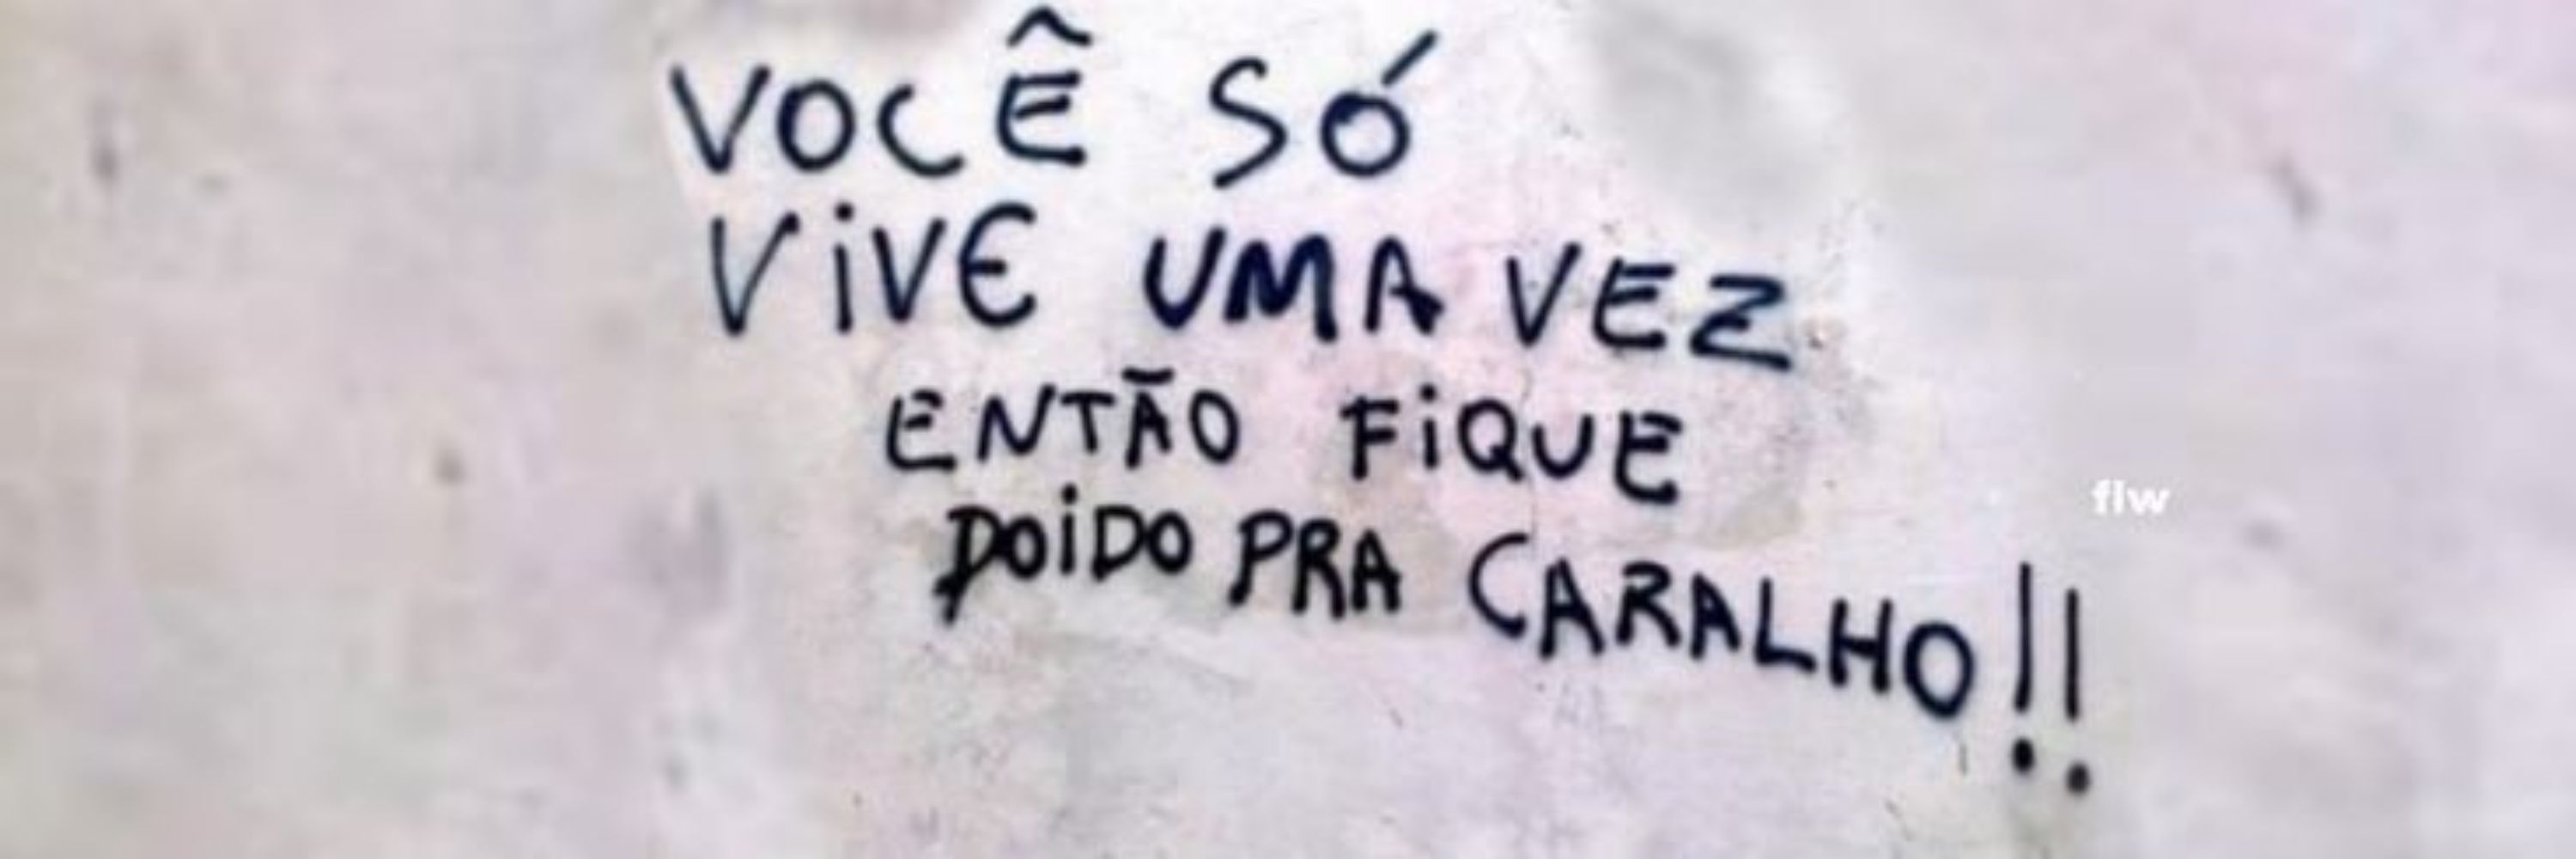 VOCÊ SÓ
ViVE UMA VEZ
ENTÃO FiQUE
DOiDO PRA CARALHO!!
fiw